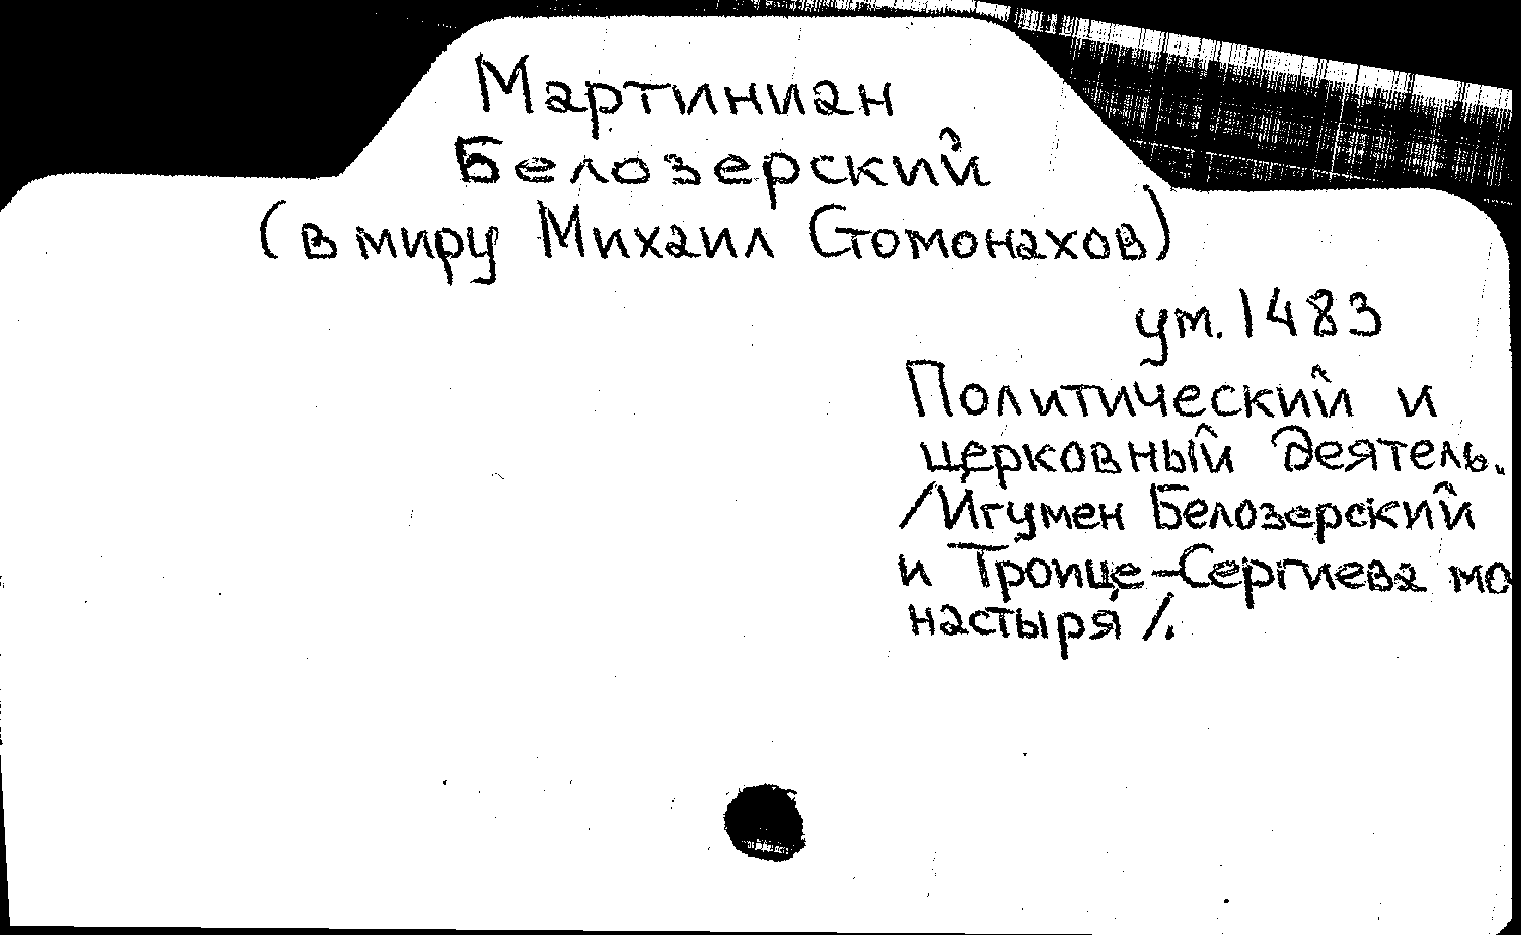 Мартиниан
Белозерский
(в миру Михаил Стомонахов)
ум. 1483
Политический и
церковный деятель.
/Игумен Белозерский
и Троице-Сергиева мо
настыря/.